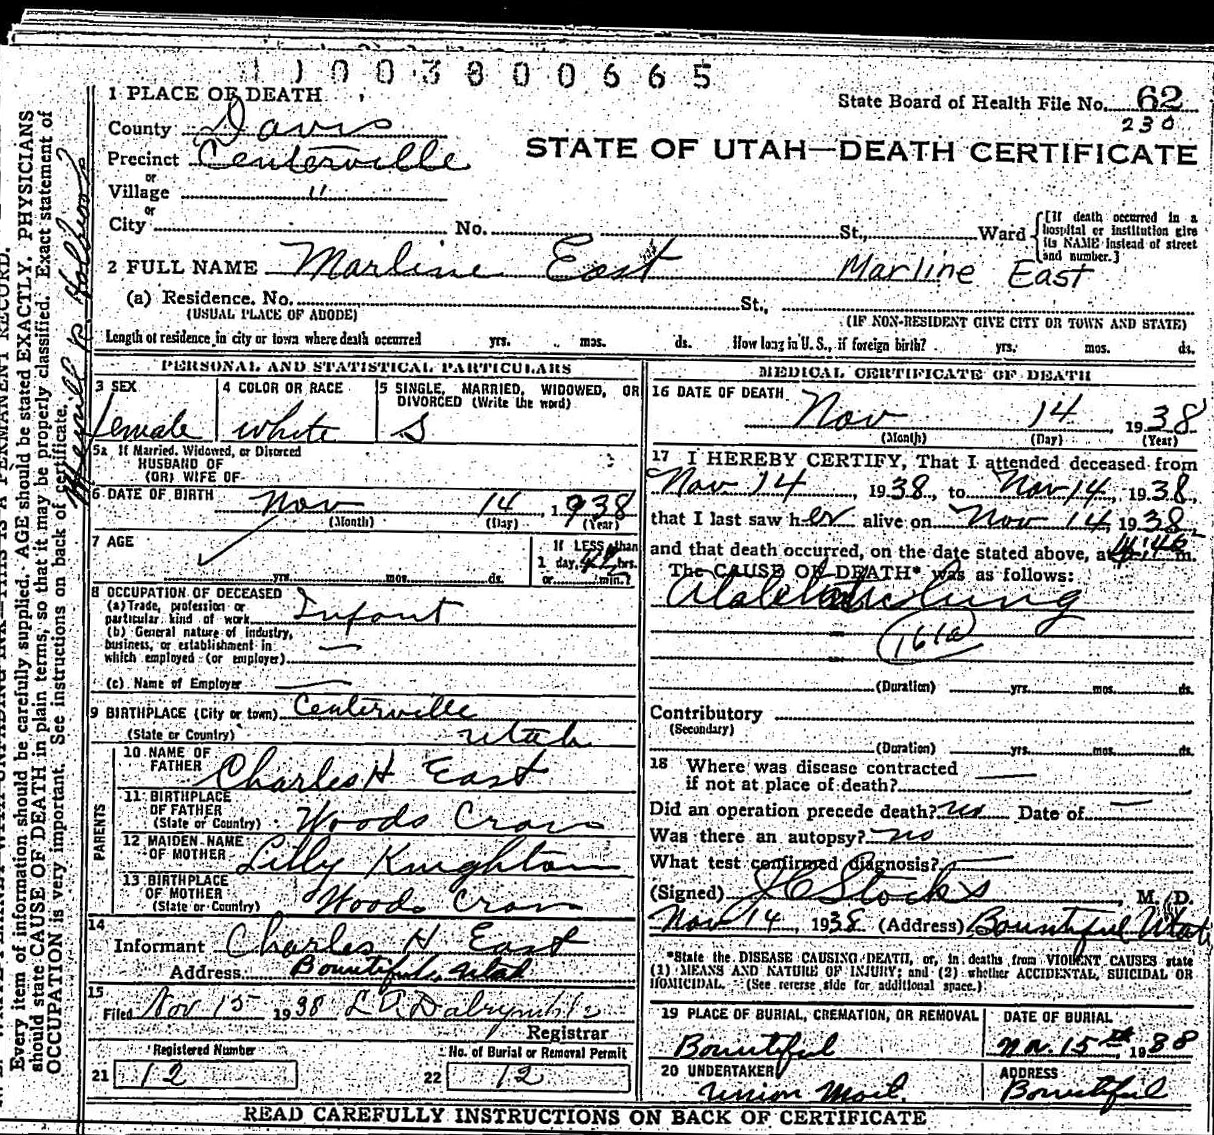 1 1 0 0 3 8 0 0 6 6 5
1 PLACE OF DEATH
State Board of Health File No. 62
230
County Davis
STATE OF UTAH—DEATH CERTIFICATE
Precinct Centerville
or
Village "
or
City No. St., Ward [If death occurred in a hospital or institution give its NAME instead of street and number.]
2 FULL NAME Marline East Marline East
(a) Residence. No. St.,
(USUAL PLACE OF ABODE) (IF NON-RESIDENT GIVE CITY OR TOWN AND STATE)
Length of residence in city or town where death occurred yrs. mos. ds. How long in U. S., if foreign birth? yrs. mos. ds.
PERSONAL AND STATISTICAL PARTICULARS
3 SEX
female
4 COLOR OR RACE
white
5 SINGLE, MARRIED, WIDOWED, OR
DIVORCED (Write the word)
S
5a If Married, Widowed, or Divorced
HUSBAND OF
(OR) WIFE OF
6 DATE OF BIRTH Nov 14 1938
(Month) (Day) (Year)
7 AGE
yrs. mos. ds.
If LESS than
1 day, hrs.
or min.?
8 OCCUPATION OF DECEASED
(a) Trade, profession or
particular kind of work Infant
(b) General nature of industry,
business, or establishment in
which employed (or employer)
(c) Name of Employer
9 BIRTHPLACE (City or town) Centerville
(State or Country) Utah
PARENTS
10 NAME OF
FATHER Charles H East
11 BIRTHPLACE
OF FATHER
(State or Country) Woods Cross
12 MAIDEN NAME
OF MOTHER Lilly Knighton
13 BIRTHPLACE
OF MOTHER
(State or Country) Woods Cross
14
Informant Charles H East
Address Bountiful, Utah
15
Filed Nov 15 1938 L A Dalrymple
Registrar
Registered Number
21 12
No. of Burial or Removal Permit
22 12
MEDICAL CERTIFICATE OF DEATH
16 DATE OF DEATH
Nov 14, 1938
(Month) (Day) (Year)
17 I HEREBY CERTIFY, That I attended deceased from
Nov 14, 1938, to Nov 14, 1938,
that I last saw her alive on Nov 14, 1938
and that death occurred, on the date stated above, at m.
The CAUSE OF DEATH* was as follows:
Lung
161a
(Duration) yrs. mos. ds.
Contributory
(Secondary)
(Duration) yrs. mos. ds.
18 Where was disease contracted
if not at place of death?
Did an operation precede death? no Date of
Was there an autopsy? no
What test confirmed diagnosis?
(Signed) J C Stocks, M. D.
Nov 14, 1938 (Address) Bountiful Utah
*State the DISEASE CAUSING DEATH, or, in deaths from VIOLENT CAUSES state
(1) MEANS AND NATURE OF INJURY; and (2) whether ACCIDENTAL, SUICIDAL OR
HOMICIDAL. (See reverse side for additional space.)
19 PLACE OF BURIAL, CREMATION, OR REMOVAL
Bountiful
DATE OF BURIAL
Nov. 15th, 1938
20 UNDERTAKER
Union Mort.
ADDRESS
Bountiful
READ CAREFULLY INSTRUCTIONS ON BACK OF CERTIFICATE
Every item of information should be carefully supplied. AGE should be stated EXACTLY. PHYSICIANS
should state CAUSE OF DEATH in plain terms, so that it may be properly classified. Exact statement of
OCCUPATION is very important. See instructions on back of certificate.